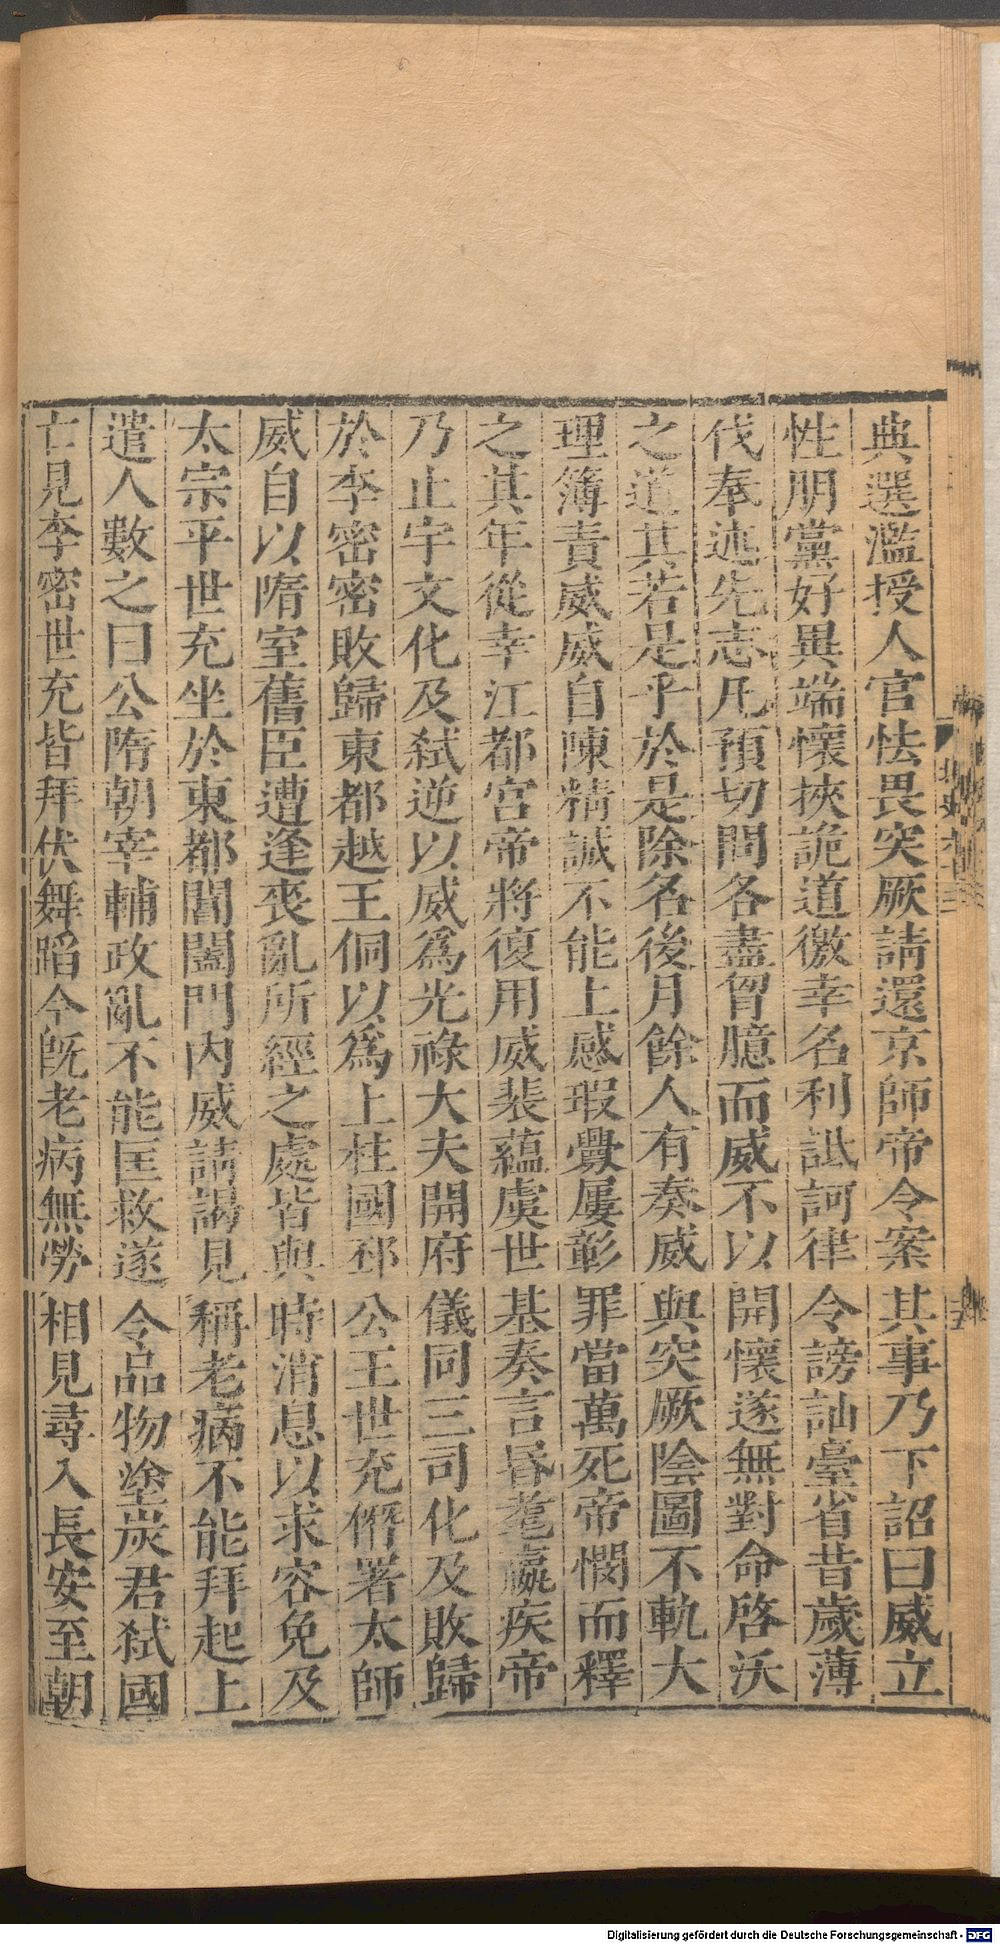 典選濫授人官怯畏突厥請還京師帝令案其事乃下詔曰威立
性朋黨好異端懷挾詭道徼幸名利詆訶律令謗訕臺省昔歲薄
伐奉述先志凡預切問各盡胷臆而威不以開懷遂無對命啓沃
之道其若是乎於是除名後月餘人有奏威與突厥陰圖不軌大
理簿責威威自陳精誠不能上感瑕釁屢彰罪當萬死帝憫而釋
之其年從幸江都宮帝將復用威裴蘊虞世基奏言昏耄羸疾帝
乃止宇文化及弑逆以威爲光祿大夫開府儀同三司化及敗歸
於李密密敗歸東都越王侗以爲上柱國邳公王世充僭署太師
威自以隋室舊臣遭逢喪亂所經之處皆與時消息以求容免及
太宗平世充坐於東都閶闔門內威請謁見稱老病不能拜起上
遣人數之曰公隋朝宰輔政亂不能匡救遂令品物塗炭君弑國
亡見李密世充皆拜伏舞蹈今旣老病無勞相見尋入長安至朝
Digitalisierung gefördert durch die Deutsche Forschungsgemeinschaft - DFG